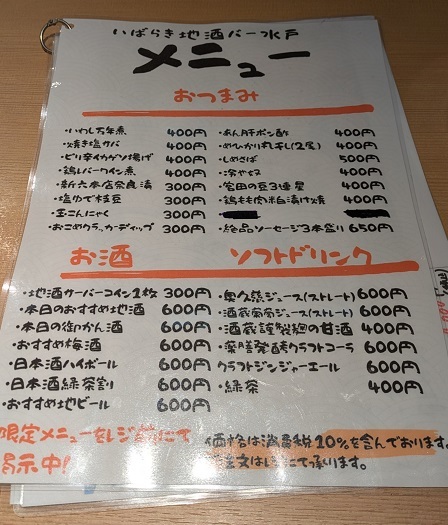 いばらき地酒バー水戸
メニュー
おつまみ
・いわし万年煮 400円
・焼き塩サバ 400円
・ピリ辛イカゲソ揚げ 400円
・鶏レバーワイン煮 400円
・新六本店奈良漬 300円
・塩ゆで枝豆 300円
・玉こんにゃく 300円
・おこめクラッカーディップ 300円
・あん肝ポン酢 400円
・めひかり丸干し(2尾) 400円
・しめさば 500円
・冷やヤヌ 400円
・宮田の豆3連星 400円
・鶏もも肉粕漬け焼 400円
・絶品ソーセージ3本盛り 650円
お酒
・地酒サーバーコイン1枚 300円
・本日のおすすめ地酒 600円
・本日の御かん酒 600円
・おすすめ梅酒 600円
・日本酒ハイボール 600円
・日本酒緑茶割り 600円
・おすすめ地ビール 600円
ソフトドリンク
・奥久慈ジュース(ストレート) 600円
・酒蔵葡萄ジュース(ストレート) 600円
・酒蔵謹製麹の甘酒 400円
・薬膳発酵クラフトコーラ 600円
クラフトジンジャーエール 600円
・緑茶 400円
限定メニューをレジ前にて
掲示中!
価格は消費税10%を含んでおります。
ご注文はレジにて承ります。